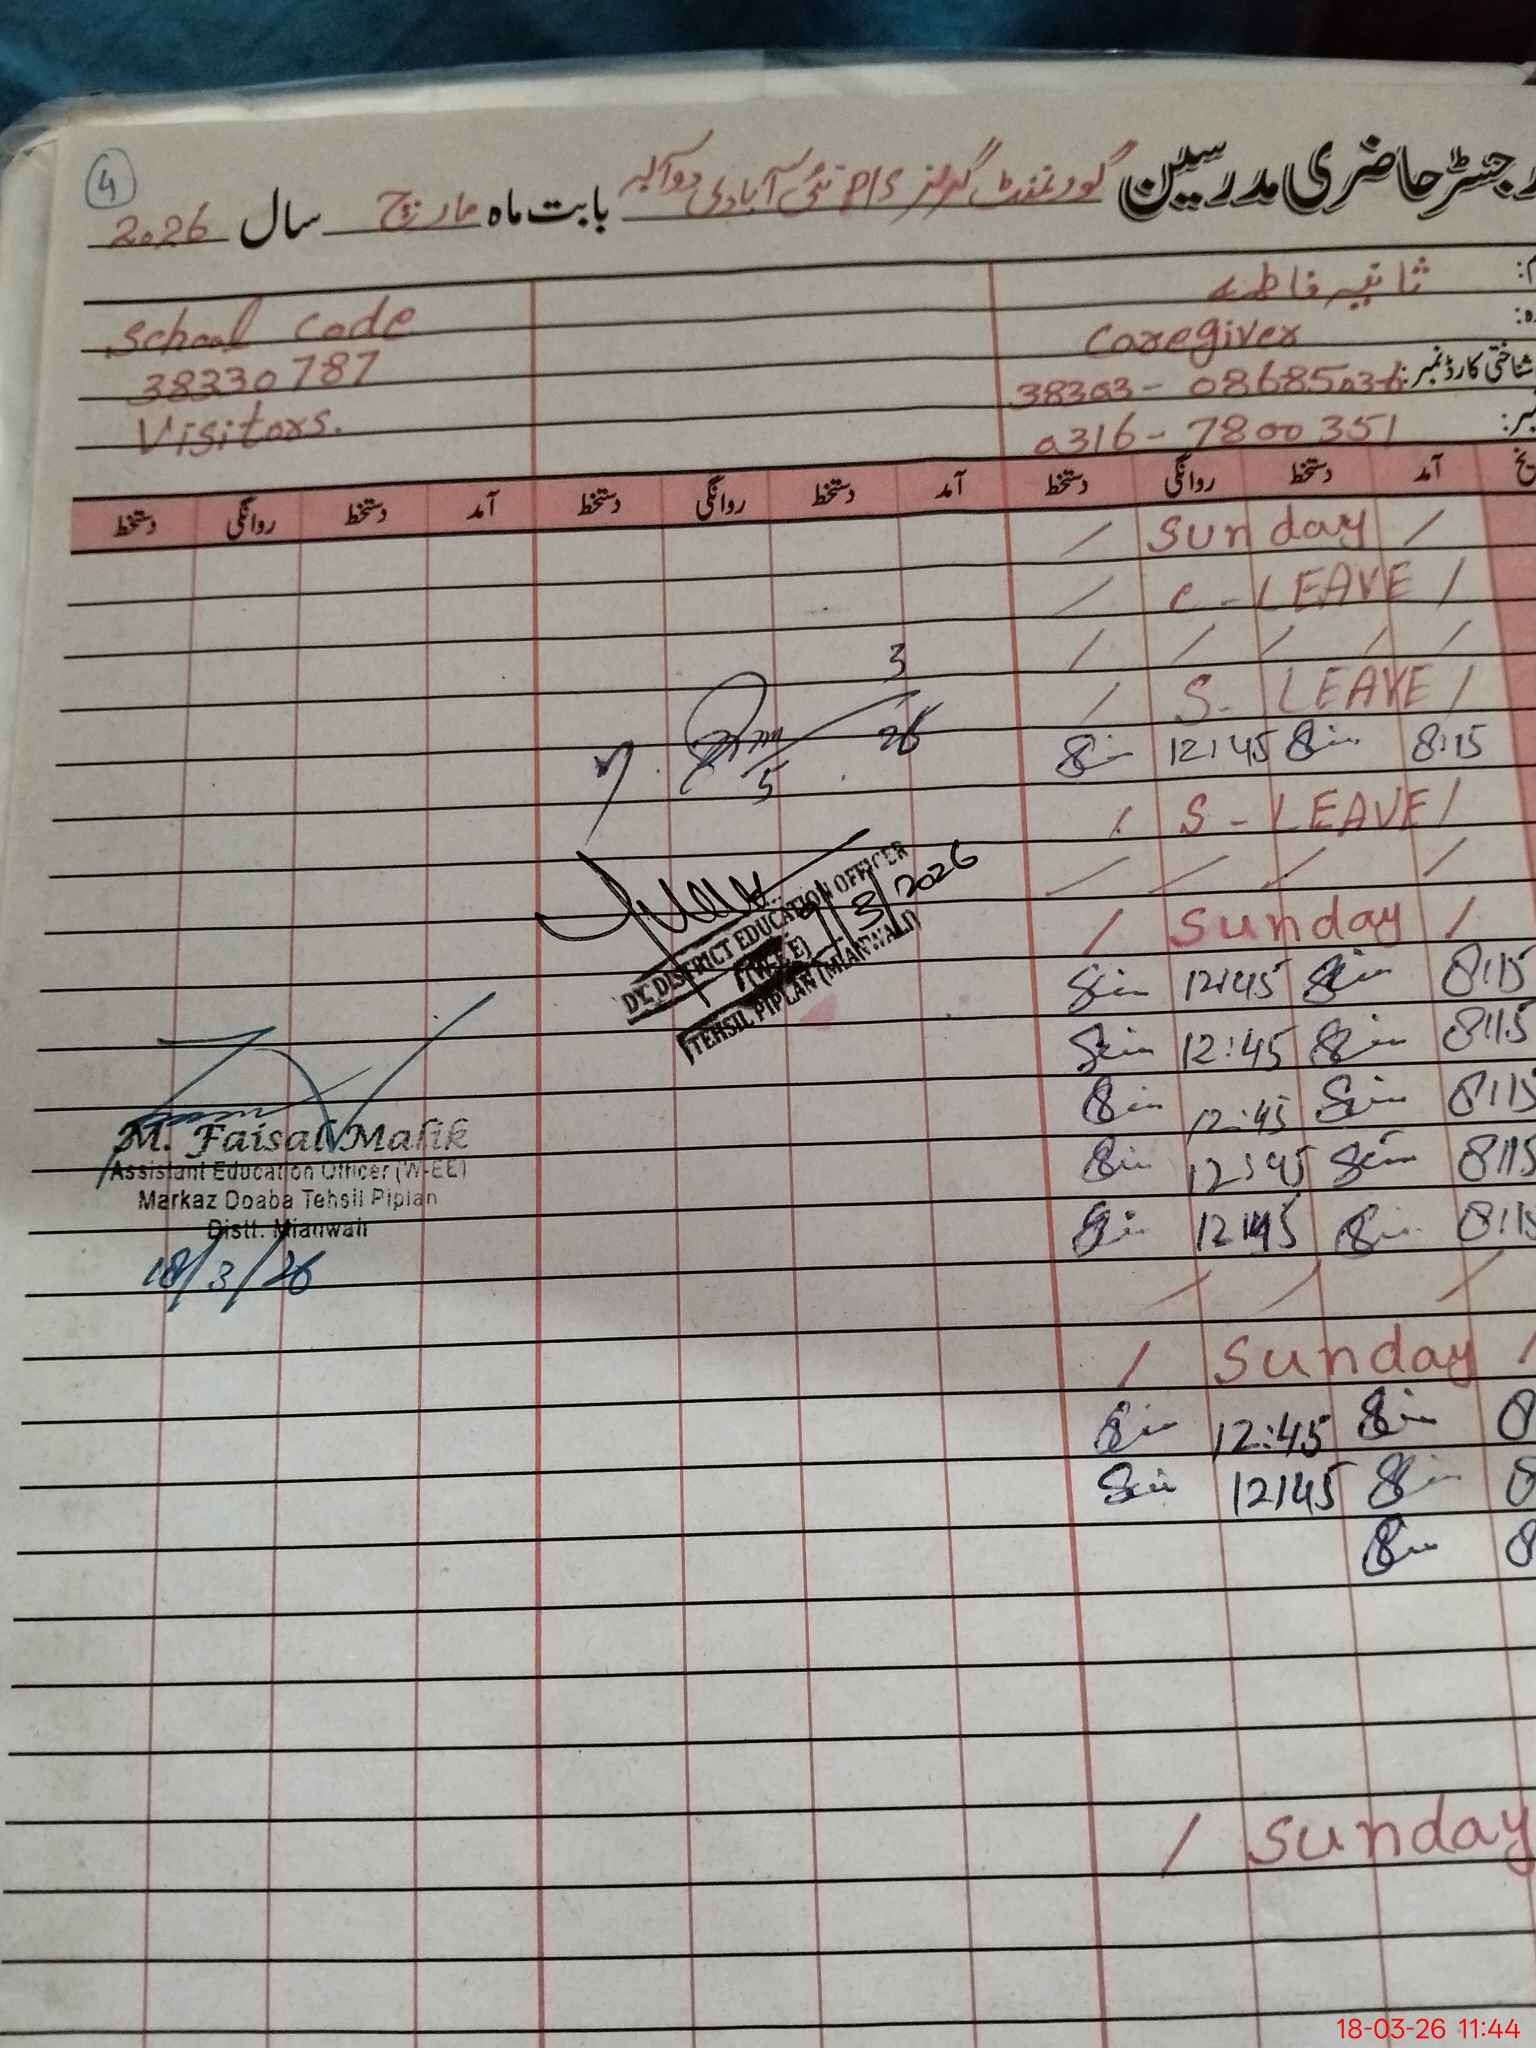 4
رجسٹر حاضری مدرسین گورنمنٹ گرلز P/S نئی آبادی دوآبہ بابت ماہ مارچ سال 2026
ثانیہ فاطمہ
School Code
Caregiver
38330787
شناختی کارڈ نمبر:
Visitors.
0316-7800351
آمد دستخط روانگی دستخط آمد دستخط روانگی دستخط آمد دستخط روانگی دستخط
/ Sunday /
/ C-LEAVE /
/ / / / /
/ S-LEAVE /
8:15 12:45
/ S-LEAVE /
/ / / /
/ Sunday /
8:15 12:45
8:15 12:45
8:15 12:45
8:15 12:45
8:15 12:45
/ / /
/ Sunday /
12:45
12:45
/ Sunday
5/3/26
DY. DISTRICT EDUCATION OFFICER
(W-EE)
TEHSIL PIPLAN (MIANWALI)
/3/2026
M. Faisal Malik
Assistant Education Officer (W-EE)
Markaz Doaba Tehsil Piplan
Distt. Mianwali
18/3/26
18-03-26 11:44